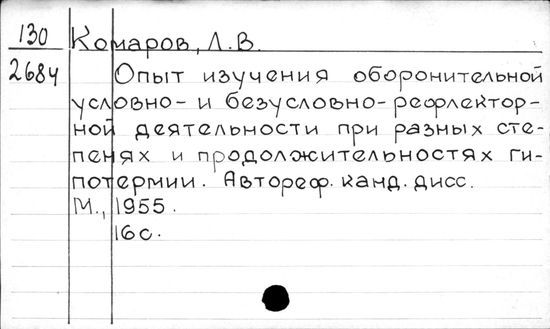 130 Комаров, Л.В.
2684 Опыт изучения оборонительной
условно- и безусловно-рефлектор-
ной деятельности при разных сте-
пенях и продолжительностях ги-
потермии. Автореф. канд. дисс.
М., 1955.
16с.